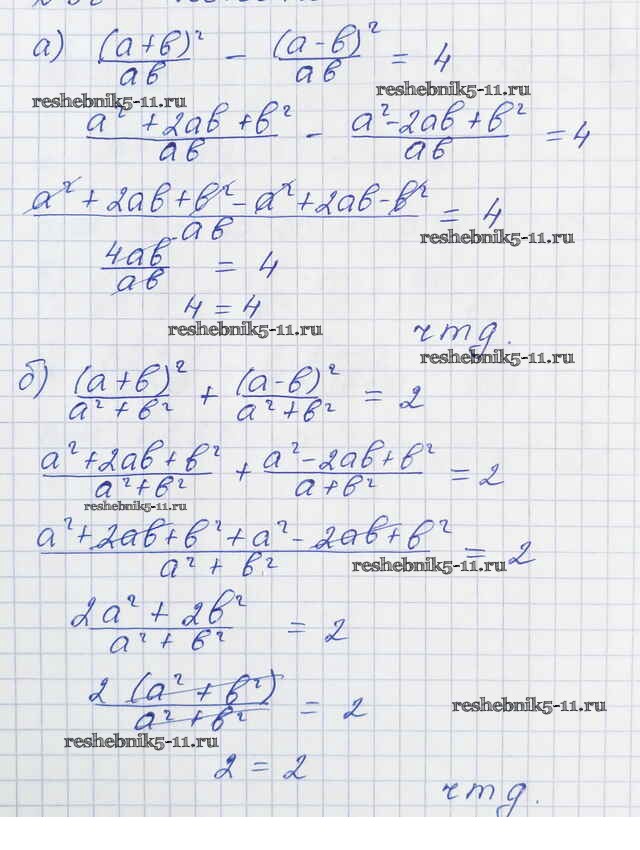 а) (а+в)²/ав - (а-в)²/ав = 4
reshebnik5-11.ru reshebnik5-11.ru
а² + 2ав + в²/ав - а²-2ав + в²/ав = 4
а² + 2ав + в² - а² + 2ав - в²/ав = 4
reshebnik5-11.ru
4ав/ав = 4
4 = 4
reshebnik5-11.ru
чтд.
reshebnik5-11.ru
б) (а+в)²/а² + в² + (а-в)²/а² + в² = 2
а² + 2ав + в²/а² + в² + а² - 2ав + в²/а + в² = 2
reshebnik5-11.ru
а² + 2ав + в² + а² - 2ав + в²/а² + в² = 2
reshebnik5-11.ru
2а² + 2в²/а² + в² = 2
2 (а² + в²)/а² + в² = 2
reshebnik5-11.ru
reshebnik5-11.ru
2 = 2
чтд.